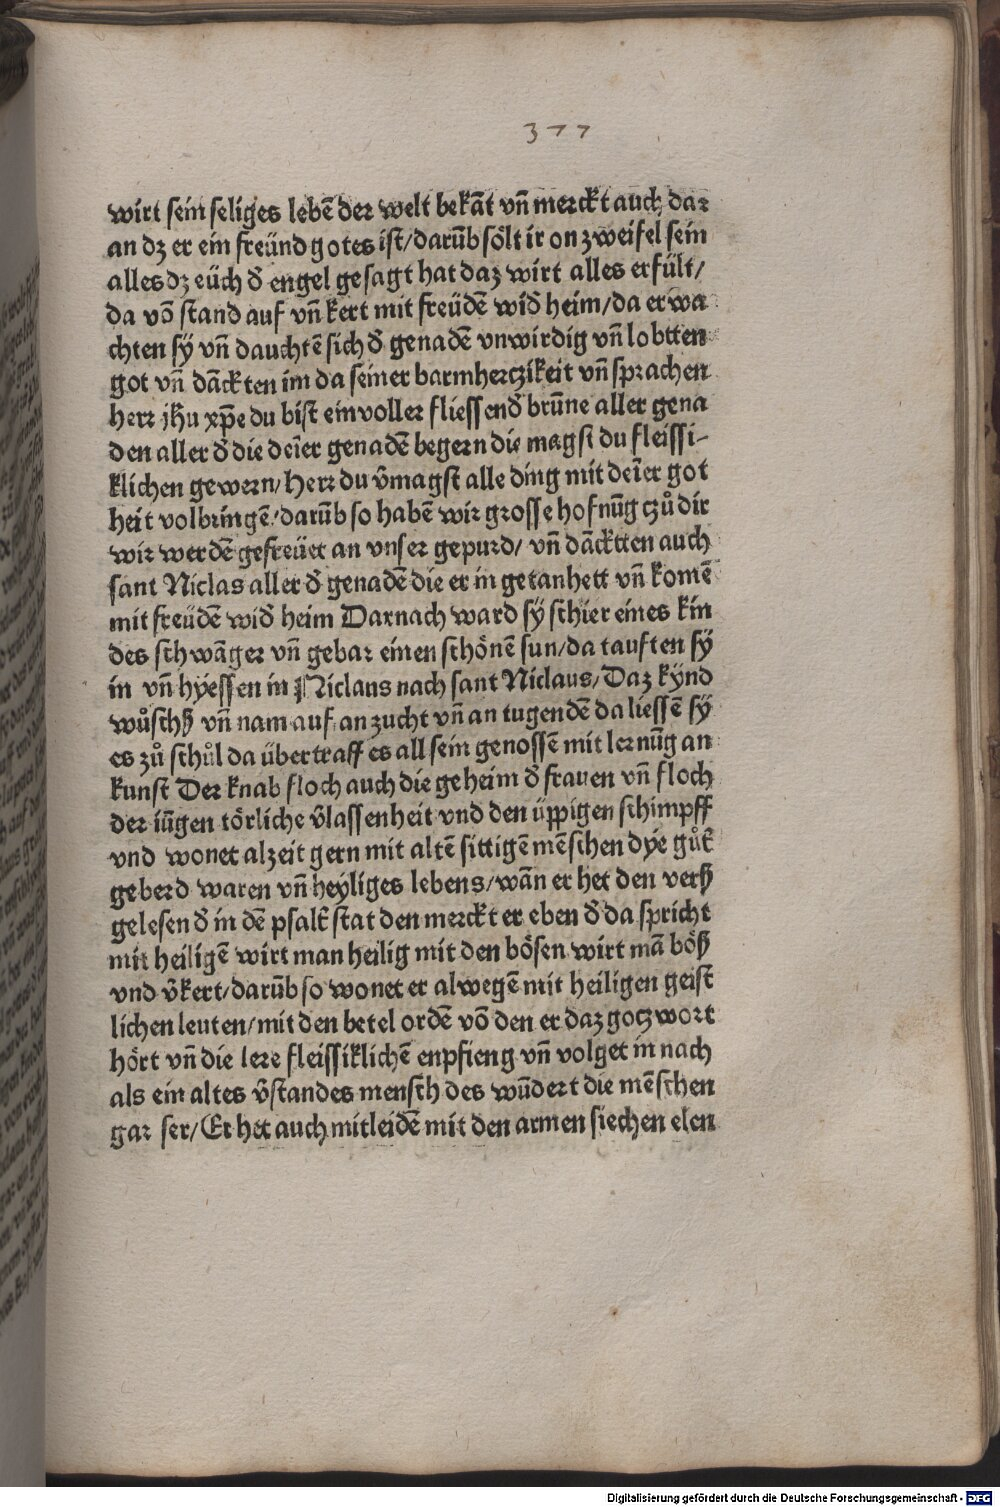 377
wirt sein seliges lebē der welt bekāt vñ merckt auch dar
an dz er ein freünd gotes ist/darūb sölt ir on zweifel sein
alles dz eüch d̄ engel gesagt hat daz wirt alles erfült/
da vō stand auf vñ kert mit freüdē wid̄ heim/da erwa
chten sÿ vñ dauchtē sich d̄ genadē vnwirdig vñ lobtten
got vñ dāckten im da seiner barmhertzikeit vñ sprachen
herr jhu xp̄e du bist ein voller fliessend̄ brūne aller gena
den aller d̄ die deīer genadē begern die magst du fleissi-
klichen gewern/Herr du v̄magst alle ding mit deīer got
heit volbringē/darūb so habē wir grosse hofnūg tzů dir
wir werdē gefreüet an vnser gepurd/ vñ dācktten auch
sant Niclas aller d̄ genadē die er in getan hett vñ komē
mit freüdē wid̄ heim Darnach ward sÿ schier eines kin
des schwāger vñ gebar einen schönē sun/da tauften sÿ
in vñ hÿessen in Niclaus nach sant Niclaus/Daz kÿnd
wůschß vñ nam auf an zucht vñ an tugendē da liessē sÿ
es zů schůl da übertraff es all sein genossē mit lernūg an
kunst Der knab floch auch die geheim d̄ frauen vñ floch
der iūgen törliche v̄lassenheit vnd den üppigen schimpff
vnd wonet alzeit gern mit altē sittigē mēschen dÿe gůt̄
geberd waren vñ heÿliges lebens/wān er het den verß
gelesen d̄ in dē psalt̄ stat den merckt er eben d̄ da spricht
mit heiligē wirt man heilig mit den bösen wirt mā böß
vnd v̄kert/darūb so wonet er alwegē mit heiligen geist
lichen leuten/mit den betel ordē vō den er daz gotz wort
hört vñ die lere fleissiklichē enpfieng vñ volget in nach
als ein altes v̄standes mensch des wūdert die mēschen
gar ser/Er het auch mitleidē mit den armen siechen elen
Digitalisierung gefördert durch die Deutsche Forschungsgemeinschaft - DFG